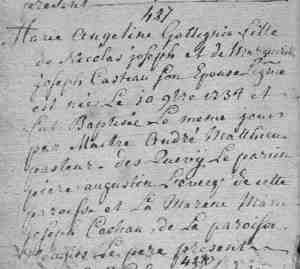 437
Marie Angeline Gottignie fille
de Nicolas joseph et de Marguerite
joseph Casteau son Epouse
est née Le 10 9bre 1734 et
fut Baptisée Le meme jour
par Maitre André Matthieu
pasteur des Quevy Le parin
pierre augustin de cette
paroisse et La Marene Marie
joseph Casteau de La paroisse
Le pere present
438